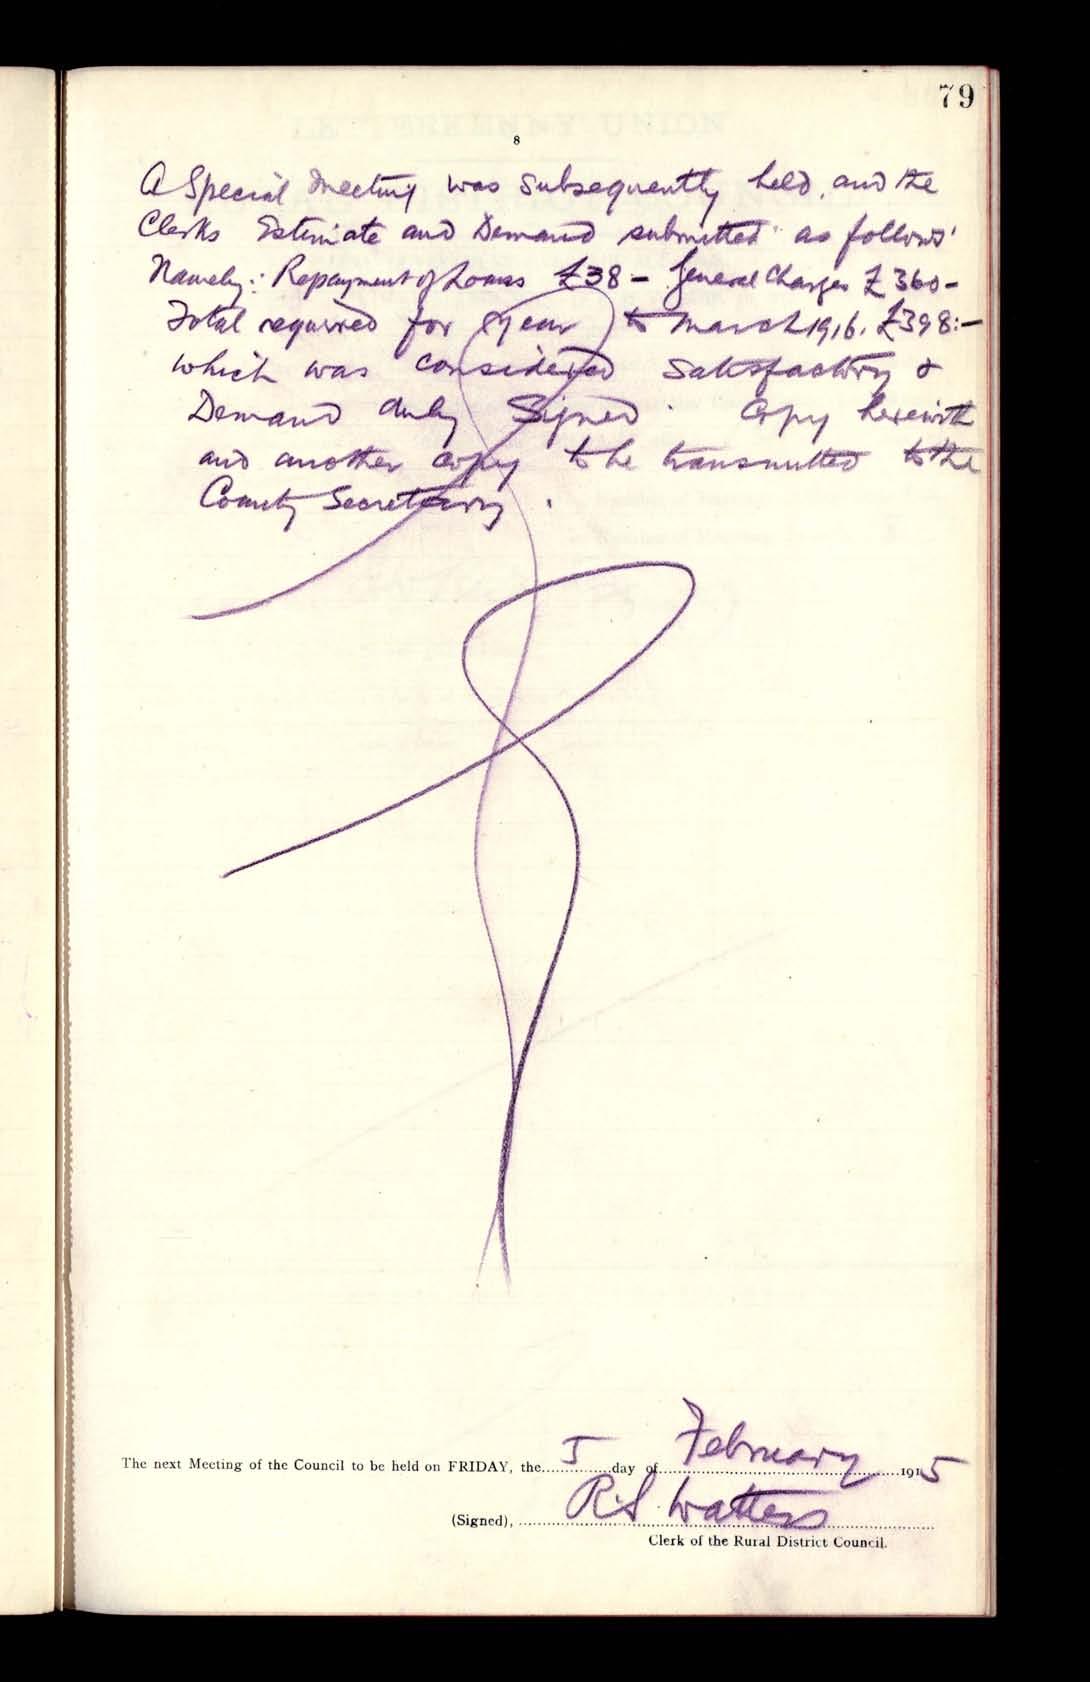 79
8
A Special Meeting was subsequently held, and the
Clerks Estimate and Demand submitted as follows
Namely: Repayment of Loans £38 - General Charges £360 -
Total required for year to March 1916. £398:-
which was considered satisfactory &
Demand duly Signed. Copy herewith
and another copy to be transmitted to the
County Secretary.
The next Meeting of the Council to be held on FRIDAY, the 5 day of February 1915
(Signed), R.S. Watters
Clerk of the Rural District Council.